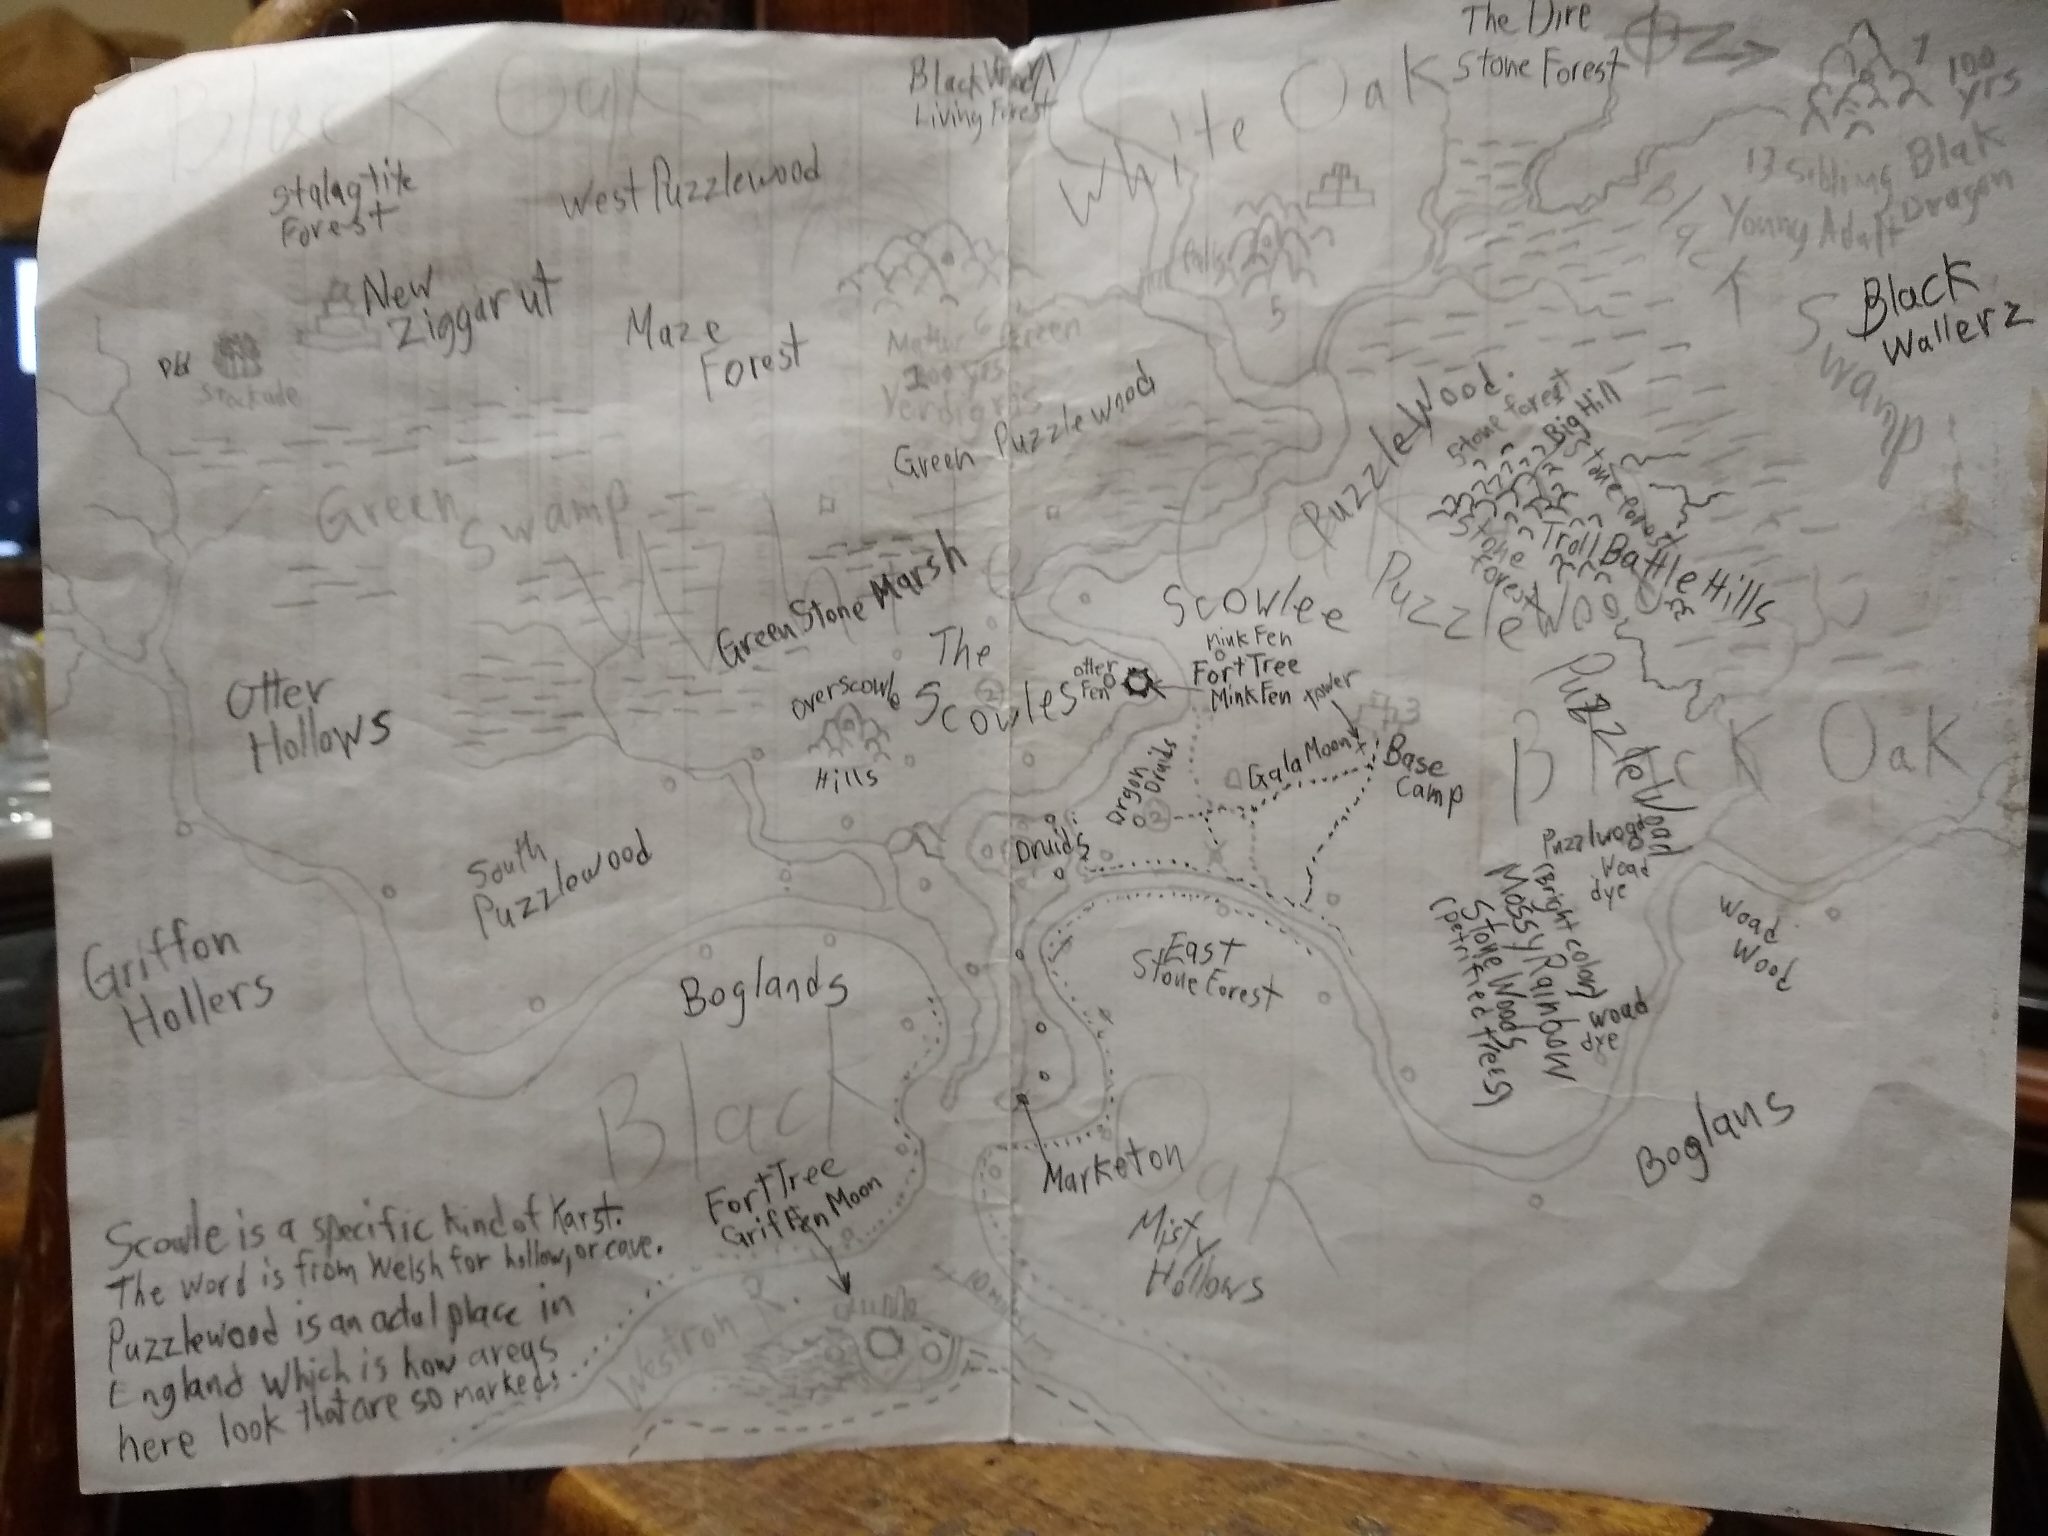 The Dire
Stone Forest
N
Black Oak
Living Forest
White Oak
7
100
yrs
13 Sibling Blak
Young Adalt Dragon
Stalagtite
Forest
West Puzzlewood
New
Ziggarut
Stockade
Maze
Forest
falls
5
6
Green
Verdigris
Green Puzzlewood
Black Swamp
Black
Wallerz
Puzzlewood
Stone forest
Big Hill
Stone forest
Stone
forest
Troll Battle Hills
Puzzlewood
Green Swamp
Green Stone Marsh
Oak
Scowlee
The
Scowles
2
Otter
Fen
Mink Fen
Fort Tree
Mink Fen
Tower
Overscowle
Hills
Otter
Hollows
Gala Moon
Base
Camp
Druids
2
Druids
Puzzlewood
Black Oak
Puzzlwood
Woad
dye
South
Puzzlewood
Boglands
East
Stone Forest
(Bright colors)
Mossy Rainbow
Stone Woods
(petrified trees)
Woad
dye
Woad
Wood
Griffon
Hollers
Black Oak
Boglans
Marketon
Misty
Hollows
Fort Tree
Griffen Moon
Westron R.
Scowle is a specific kind of Karst.
The word is from Welsh for hollow, or cave.
Puzzlewood is an actul place in
England which is how areys
here look that are so markeds.